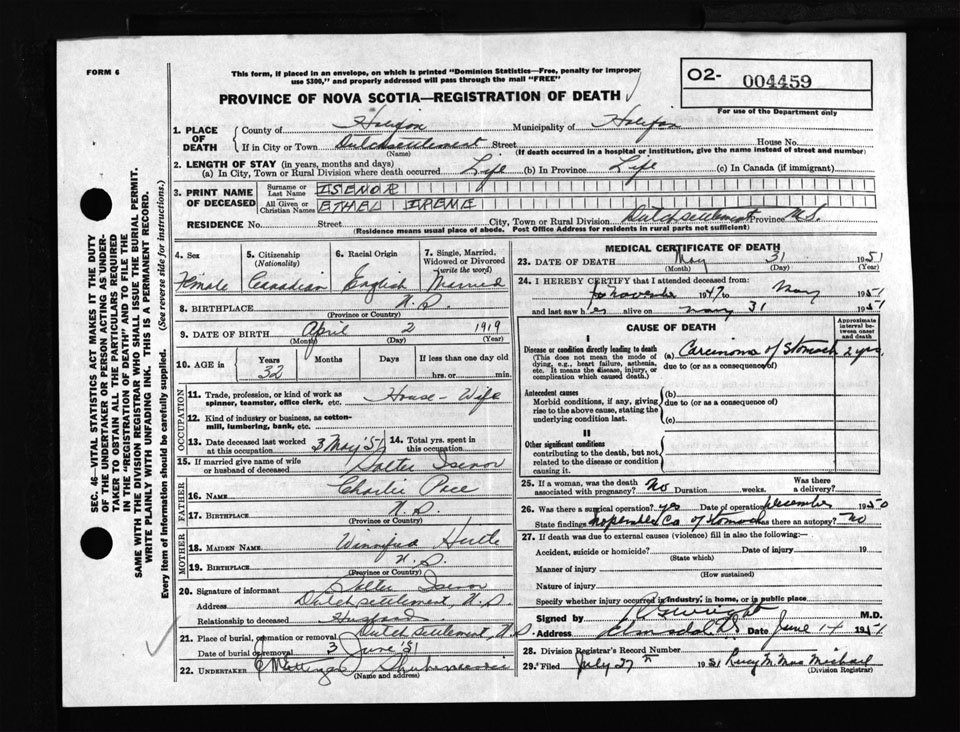 FORM 6
This form, if placed in an envelope, on which is printed "Dominion Statistics—Free, penalty for improper
use $300," and properly addressed will pass through the mail "FREE"
PROVINCE OF NOVA SCOTIA—REGISTRATION OF DEATH
O2- 004459
For use of the Department only
1. PLACE OF DEATH
County of Halifax Municipality of Halifax
If in City or Town Dutch settlement Street House No.
(Name) (If death occurred in a hospital or institution, give the name instead of street and number)
2. LENGTH OF STAY (in years, months and days)
(a) In City, Town or Rural Division where death occurred Life (b) In Province Life (c) In Canada (if immigrant)
3. PRINT NAME OF DECEASED
Surname or Last Name ISENOR
All Given or Christian Names ETHEL IRENE
RESIDENCE No. Street City, Town or Rural Division Dutch settlement Province N.S.
(Residence means usual place of abode. Post Office Address for residents in rural parts not sufficient)
4. Sex
Female
5. Citizenship
(Nationality)
Canadian
6. Racial Origin
English
7. Single, Married,
Widowed or Divorced
(write the word)
Married
8. BIRTHPLACE N.S.
(Province or Country)
9. DATE OF BIRTH April 2 1919
(Month) (Day) (Year)
10. AGE in Years Months Days If less than one day old
32 hrs. or min.
OCCUPATION
11. Trade, profession, or kind of work as House-Wife
spinner, teamster, office clerk, etc.
12. Kind of industry or business, as cotton-
mill, lumbering, bank, etc.
13. Date deceased last worked
at this occupation 3 May '51
14. Total yrs. spent in
this occupation
15. If married give name of wife
or husband of deceased Isenor
FATHER
16. NAME Charlie Pace
17. BIRTHPLACE N.S.
(Province or Country)
MOTHER
18. MAIDEN NAME Winnifred
19. BIRTHPLACE N.S.
(Province or Country)
20. Signature of informant Isenor
Address Dutch settlement, N.S.
Relationship to deceased Husband
21. Place of burial, cremation or removal Dutch settlement, N.S.
Date of burial or removal 3 June '51
22. UNDERTAKER Shubenacadie
(Name and address)
MEDICAL CERTIFICATE OF DEATH
23. DATE OF DEATH May 31 1951
(Month) (Day) (Year)
24. I HEREBY CERTIFY that I attended deceased from:
November 1949 to May 1951
and last saw her alive on May 31 1951
CAUSE OF DEATH
Approximate
interval be-
tween onset
and death
Disease or condition directly leading to death
(This does not mean the mode of
dying, e.g., heart failure, asthenia,
etc. It means the disease, injury, or
complication which caused death.)
(a) Carcinoma of Stomach 2 yrs.
due to (or as a consequence of)
Antecedent causes
Morbid conditions, if any, giving
rise to the above cause, stating the
underlying condition last.
(b)
due to (or as a consequence of)
(c)
II
Other significant conditions
contributing to the death, but not
related to the disease or condition
causing it.
25. If a woman, was the death
associated with pregnancy? No Duration weeks. Was there
a delivery?
26. Was there a surgical operation? yes Date of operation December 1950
State findings Ca of Stomach Was there an autopsy? No
27. If death was due to external causes (violence) fill in also the following:—
Accident, suicide or homicide? Date of injury 19
(State which)
Manner of injury
(How sustained)
Nature of injury
Specify whether injury occurred in industry, in home, or in public place
Signed by M.D.
Address Elmsdale Date June 14 1951
28. Division Registrar's Record Number
29. Filed July 27 1951 Lucy M. MacMichael
(Division Registrar)
SEC. 46—VITAL STATISTICS ACT MAKES IT THE DUTY
OF THE UNDERTAKER OR PERSON ACTING AS UNDER-
TAKER TO OBTAIN ALL THE PARTICULARS REQUIRED
IN THE "REGISTRATION OF DEATH" AND TO FILE THE
SAME WITH THE DIVISION REGISTRAR WHO SHALL ISSUE THE BURIAL PERMIT.
WRITE PLAINLY WITH UNFADING INK. THIS IS A PERMANENT RECORD.
Every item of information should be carefully supplied. (See reverse side for instructions.)